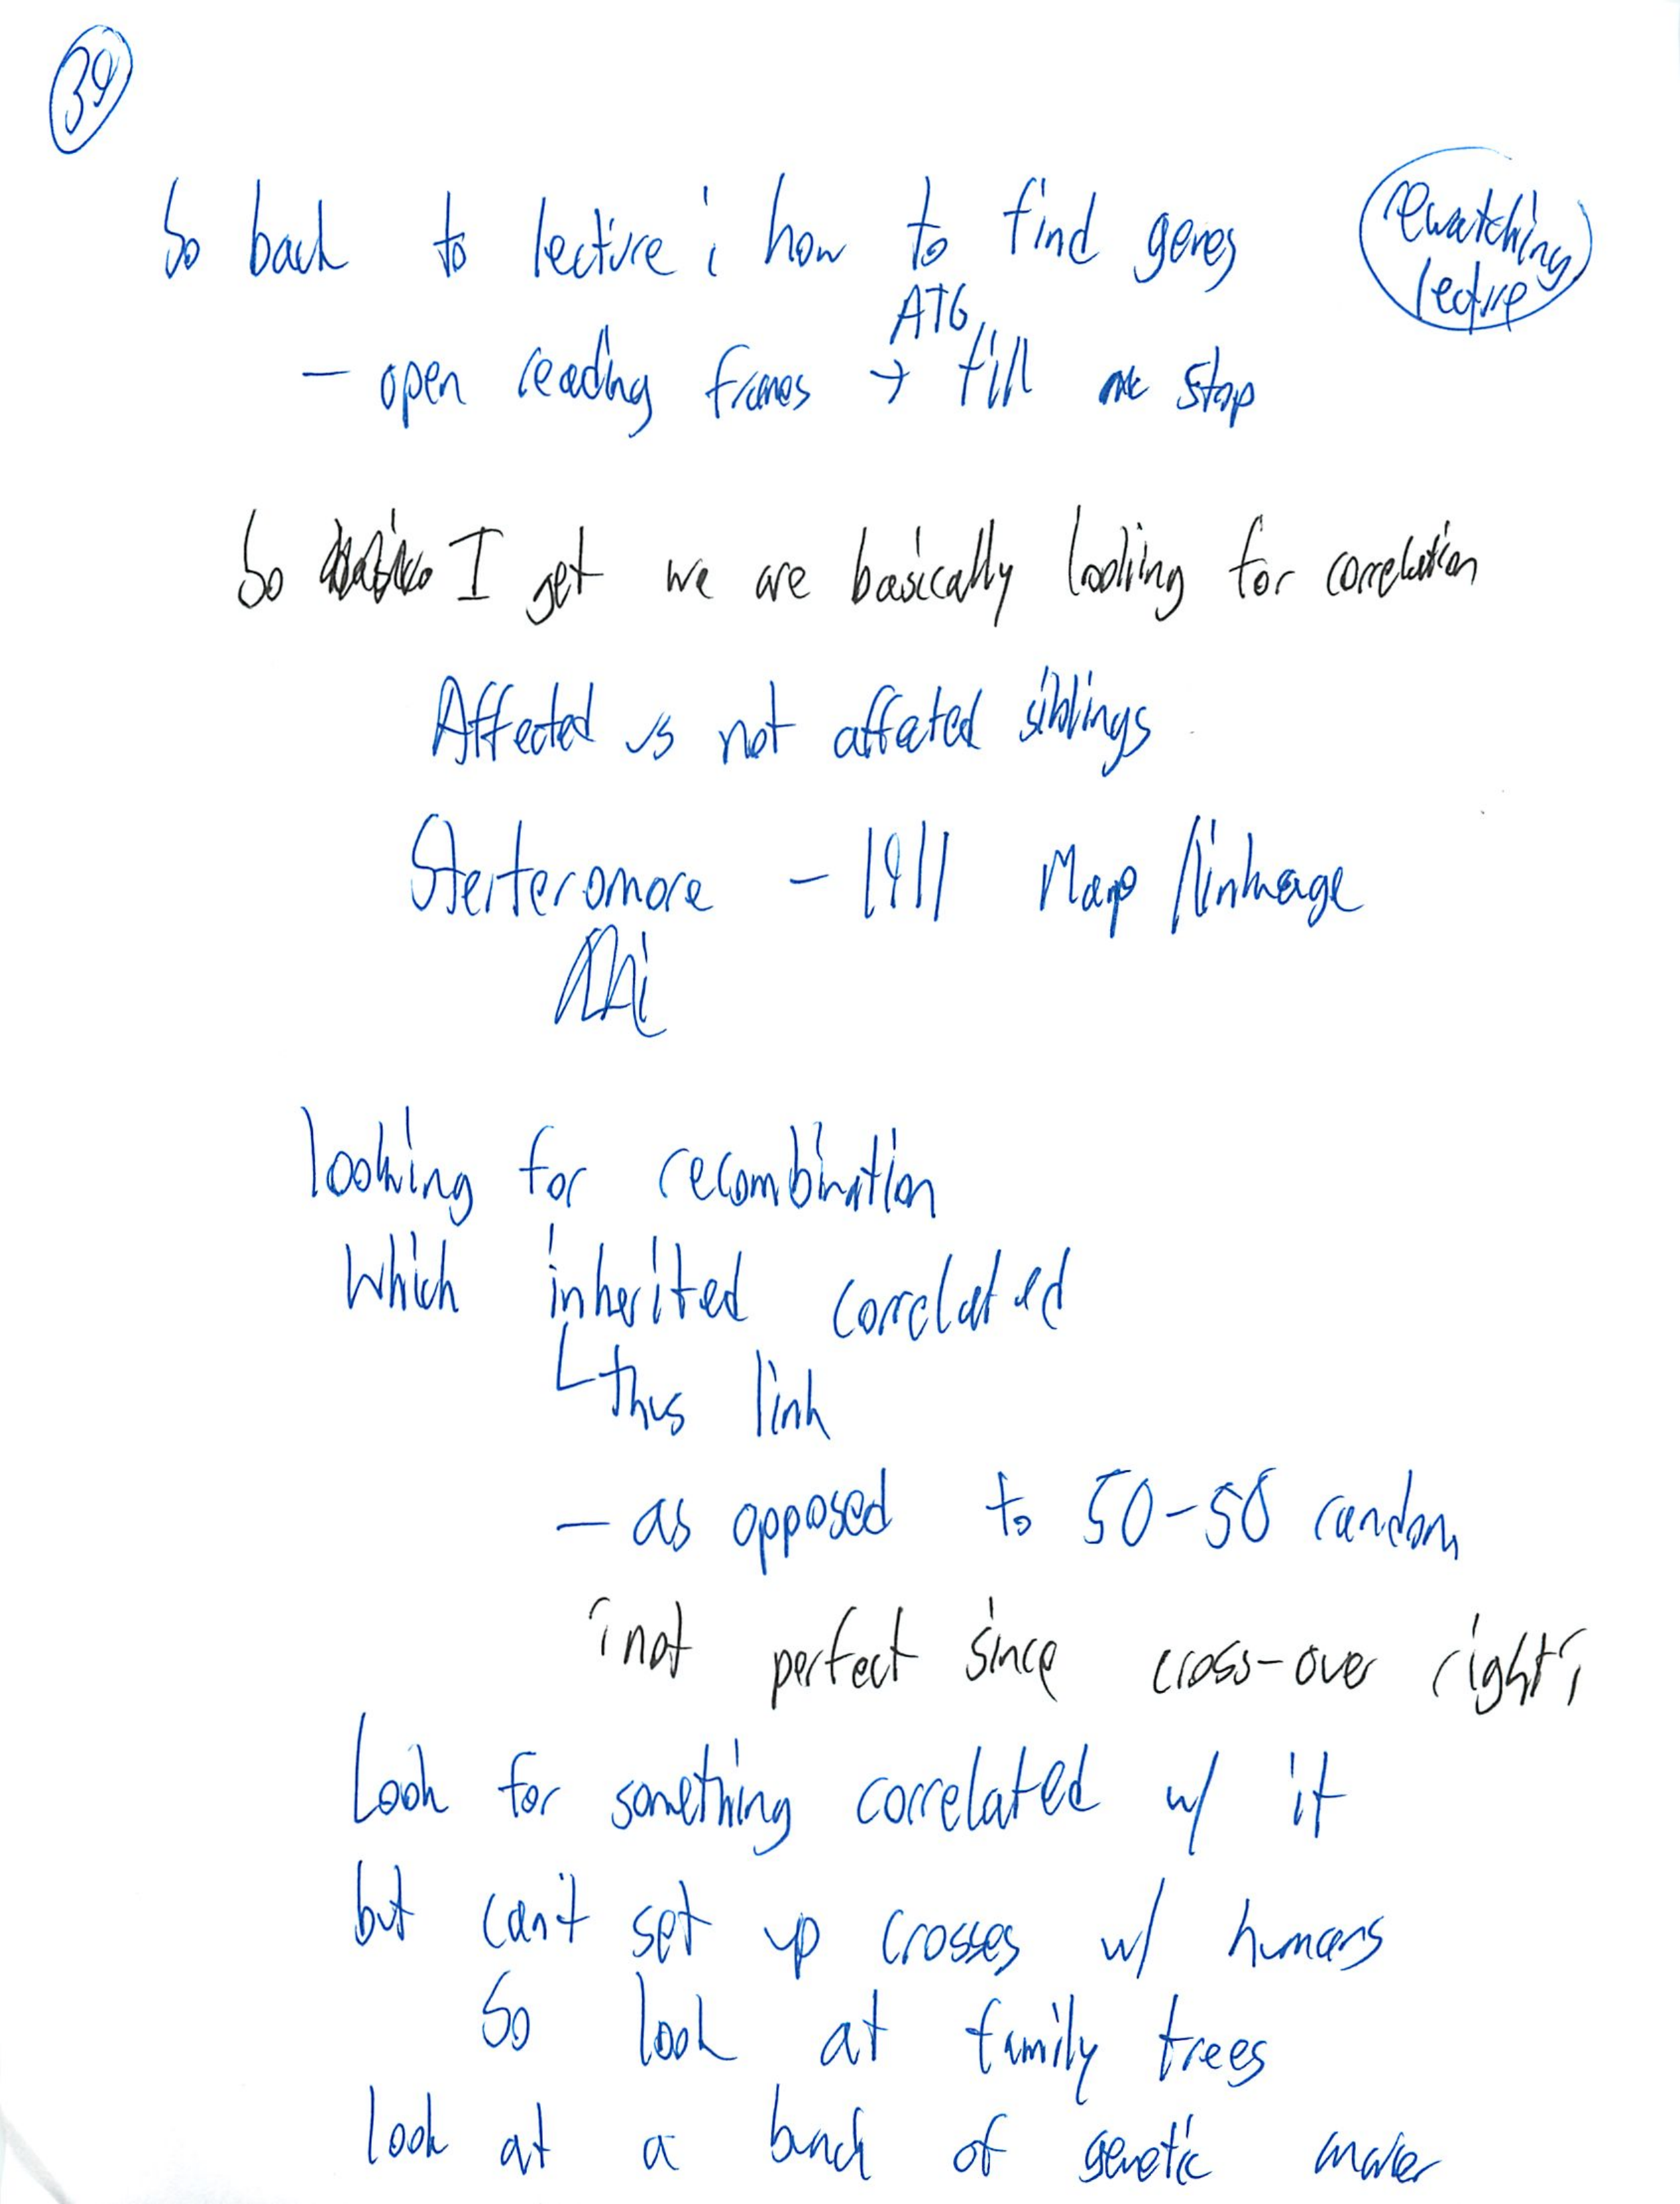 39
So back to lecture; how to find genes
rewatching
lecture
ATG
- open reading frames → till stop
So I get we are basically looking for correlation
Affected vs not affected siblings
Sterteromore - 1911 Map/linkage
looking for recombination
Which inherited correlated
thus link
- as opposed to 50-50 random
¿not perfect since cross-over right?
Look for something correlated w/ it
but can't set up crosses w/ humans
So look at family trees
look at a bunch of genetic marker